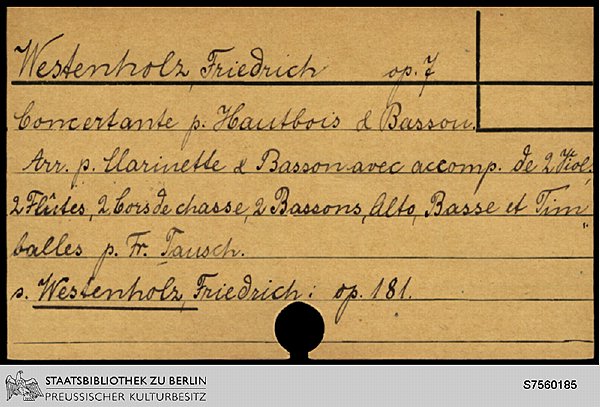 Westenholz, Friedrich op. 7
Concertante p. Hautbois & Basson.
Arr. p. Clarinette & Basson avec accomp. de 2 Viol.
2 Flûtes, 2 Cors de chasse, 2 Bassons, Alto, Basse et Tim
balles p. Fr. Tausch.
s. Westenholz, Friedrich: op. 181.
STAATSBIBLIOTHEK ZU BERLIN
PREUSSISCHER KULTURBESITZ
S7560185